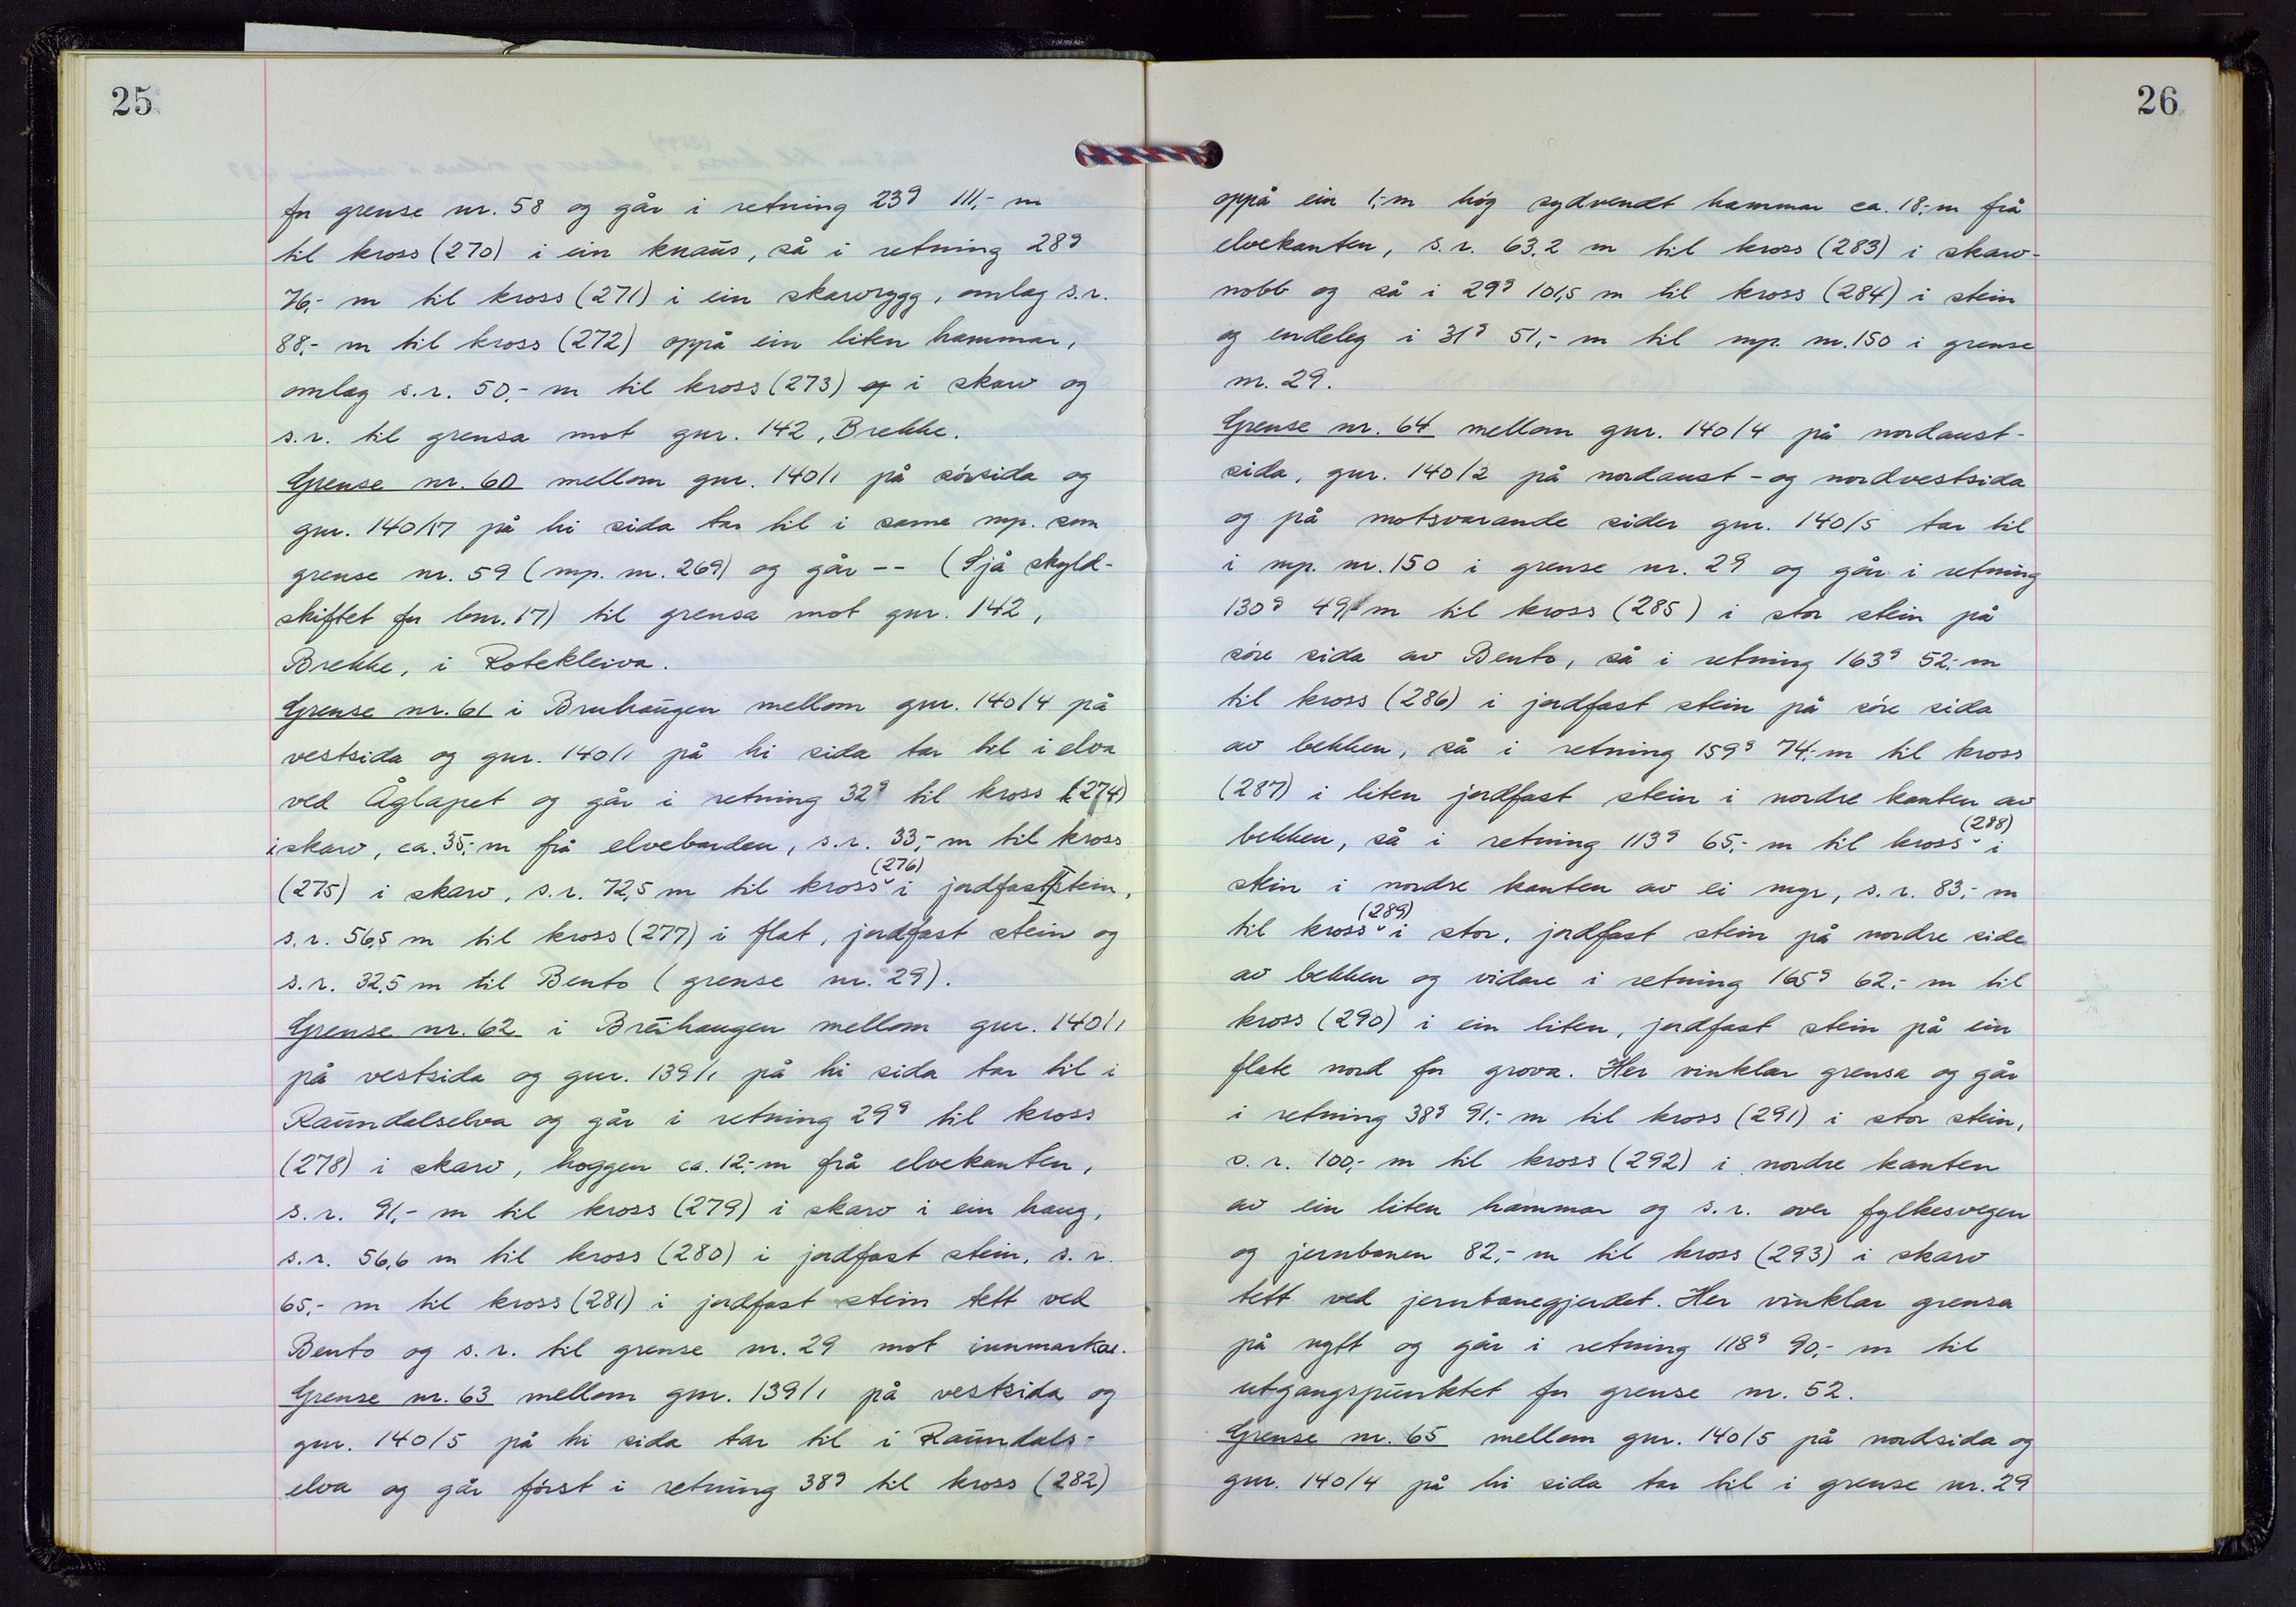 25
for grense nr. 58 og går i retning 23g 111,- m
til kross (270) i ein knaus, så i retning 28g
76,- m til kross (271) i ein skarvrygg, omlag s.r.
88,- m til kross (272) oppå ein liten hammar,
omlag s.r. 50,- m til kross (273) og i skarv og
s.r. til grensa mot gnr. 142, Brekke.
Grense nr. 60 mellom gnr. 140/1 på sørsida og
gnr. 140/17 på hi sida tar til i same mp. som
grense nr. 59 (mp. nr. 269) og går -- (Sjå skyld-
skiftet for bnr. 17) til grensa mot gnr. 142,
Brekke, i Rotekleiva.
Grense nr. 61 i Bruhaugen mellom gnr. 140/4 på
vestsida og gnr. 140/1 på hi sida tar til i elva
ved Åglapet og går i retning 32g til kross (274)
i skarv, ca. 35,-m frå elvebarden, s.r. 33,-m til kross
(275) i skarv, s.r. 72,5 m til kross (276) i jordfast stein,
s.r. 56,5 m til kross (277) i flat, jordfast stein og
s.r. 32,5 m til Bento (grense nr. 29).
Grense nr. 62 i Breihaugen mellom gnr. 140/1
på vestsida og gnr. 139/1 på hi sida tar til i
Raundalselva og går i retning 29g til kross
(278) i skarv, hoggen ca. 12,-m frå elvekanten,
s.r. 91,- m til kross (279) i skarv i ein haug,
s.r. 56,6 m til kross (280) i jordfast stein, s.r.
65,- m til kross (281) i jordfast stein tett ved
Bento og s.r. til grense nr. 29 mot innmarka.
Grense nr. 63 mellom gnr. 139/1 på vestsida og
gnr. 140/5 på hi sida tar til i Raundals-
elva og går først i retning 38g til kross (282)
26
oppå ein 1,-m høg sydvendt hammar ca. 18,-m frå
elvekanten, s.r. 63,2 m til kross (283) i skarv-
nobb og så i 29g 101,5 m til kross (284) i stein
og endeleg i 31g 51,- m til mp. nr. 150 i grense
nr. 29.
Grense nr. 64 mellom gnr. 140/4 på nordaust-
sida, gnr. 140/2 på nordaust- og nordvestsida
og på motsvarande sider gnr. 140/5 tar til
i mp. nr. 150 i grense nr. 29 og går i retning
130g 49,- m til kross (285) i stor stein på
søre sida av Bento, så i retning 163g 52,-m
til kross (286) i jordfast stein på søre sida
av bekken, så i retning 159g 74,-m til kross
(287) i liten jordfast stein i nordre kanten av
bekken, så i retning 113g 65,- m til kross (288) i
stein i nordre kanten av ei myr, s.r. 83,- m
til kross (289) i stor, jordfast stein på nordre side
av bekken og vidare i retning 165g 62,- m til
kross (290) i ein liten, jordfast stein på ein
flate nord for grova. Her vinklar grensa og går
i retning 38g 91,- m til kross (291) i stor stein,
s.r. 100,- m til kross (292) i nordre kanten
av ein liten hammar og s.r. over fylkesvegen
og jernbanen 82,- m til kross (293) i skarv
tett ved jernbanegjerdet. Her vinklar grensa
på nytt og går i retning 118g 90,- m til
utgangspunktet for grense nr. 52.
Grense nr. 65 mellom gnr. 140/5 på nordsida og
gnr. 140/4 på hi sida tar til i grense nr. 29